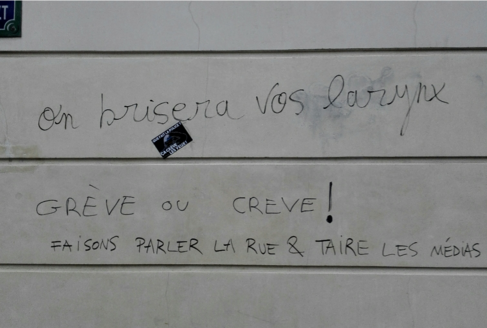 ET
on brisera vos larynx
GRÈVE OU CREVE !
FAISONS PARLER LA RUE & TAIRE LES MÉDIAS